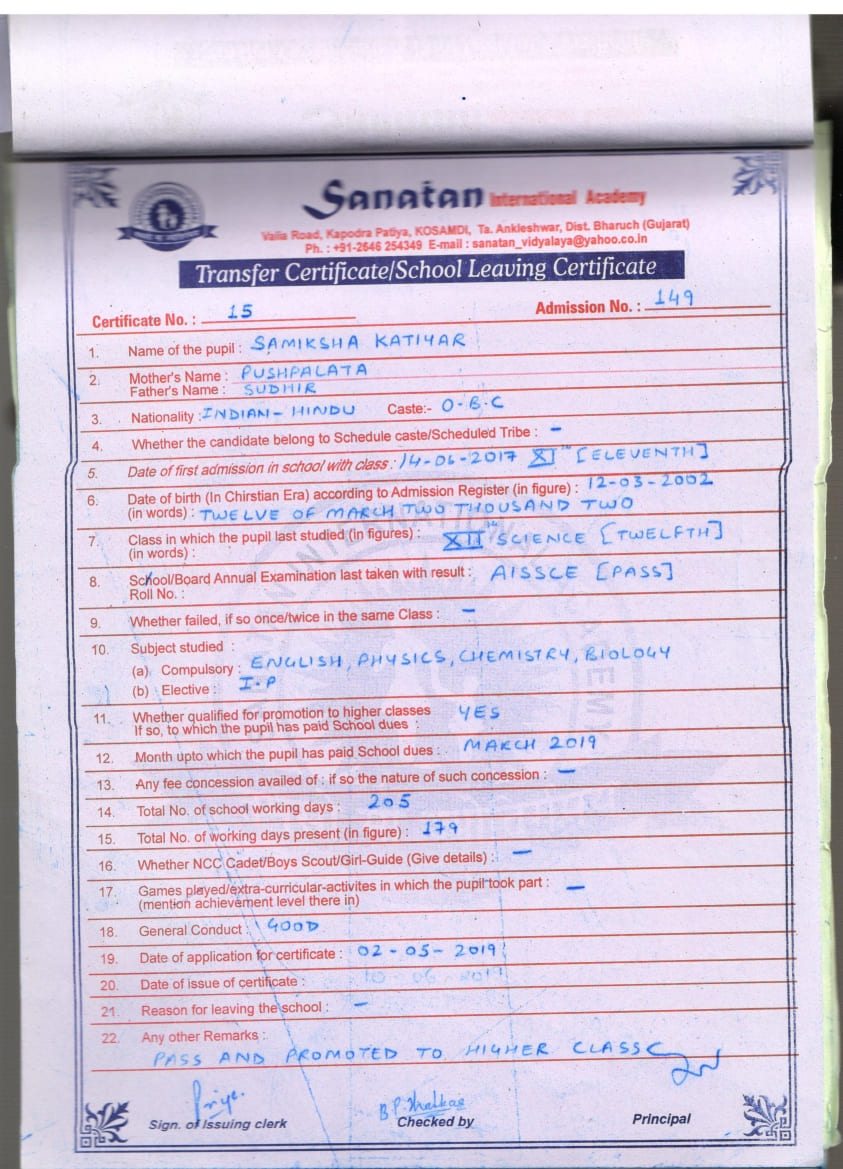 Sanatan International Academy
Valia Road, Kapodra Patiya, KOSAMDI, Ta. Ankleshwar, Dist. Bharuch (Gujarat)
Ph. : +91-2646 254349 E-mail : sanatan_vidyalaya@yahoo.co.in
Transfer Certificate/School Leaving Certificate
Certificate No. : 15 Admission No. : 149
1. Name of the pupil : SAMIKSHA KATIYAR
2. Mother's Name : PUSHPALATA
Father's Name : SUDHIR
3. Nationality : INDIAN - HINDU Caste:- O-B-C
4. Whether the candidate belong to Schedule caste/Scheduled Tribe : -
5. Date of first admission in school with class : 14-06-2017 XI TH [ELEVENTH]
6. Date of birth (In Chirstian Era) according to Admission Register (in figure) : 12-03-2002
(in words) : TWELVE OF MARCH TWO THOUSAND TWO
7. Class in which the pupil last studied (in figures) : XII TH SCIENCE [TWELFTH]
(in words) :
8. School/Board Annual Examination last taken with result : AISSCE [PASS]
Roll No. :
9. Whether failed, if so once/twice in the same Class : -
10. Subject studied :
(a) Compulsory : ENGLISH, PHYSICS, CHEMISTRY, BIOLOGY
(b) Elective : I.P
11. Whether qualified for promotion to higher classes YES
If so, to which the pupil has paid School dues :
12. Month upto which the pupil has paid School dues : MARCH 2019
13. Any fee concession availed of : if so the nature of such concession : -
14. Total No. of school working days : 205
15. Total No. of working days present (in figure) : 179
16. Whether NCC Cadet/Boys Scout/Girl-Guide (Give details) : -
17. Games played/extra-curricular-activites in which the pupil took part : -
(mention achievement level there in)
18. General Conduct : GOOD
19. Date of application for certificate : 02-05-2019
20. Date of issue of certificate : 10-06-2019
21. Reason for leaving the school : -
22. Any other Remarks :
PASS AND PROMOTED TO HIGHER CLASS
Sign. of Issuing clerk Checked by Principal